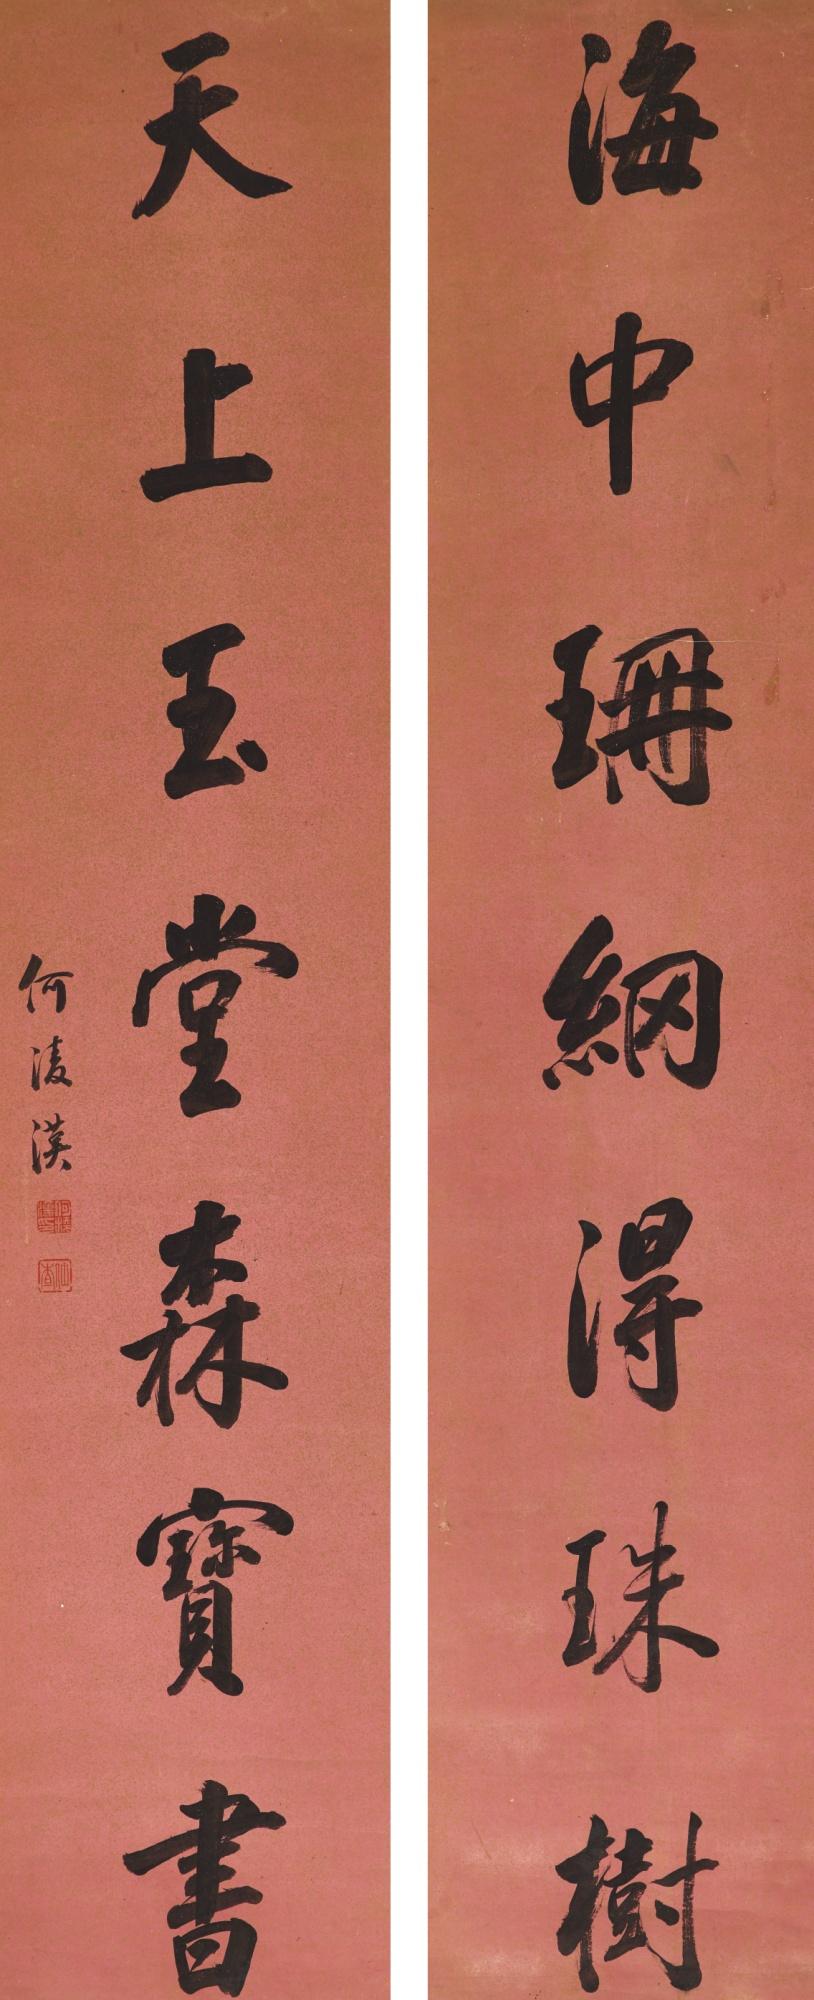 海中珊網得珠樹
天上玉堂森寶書
何凌漢